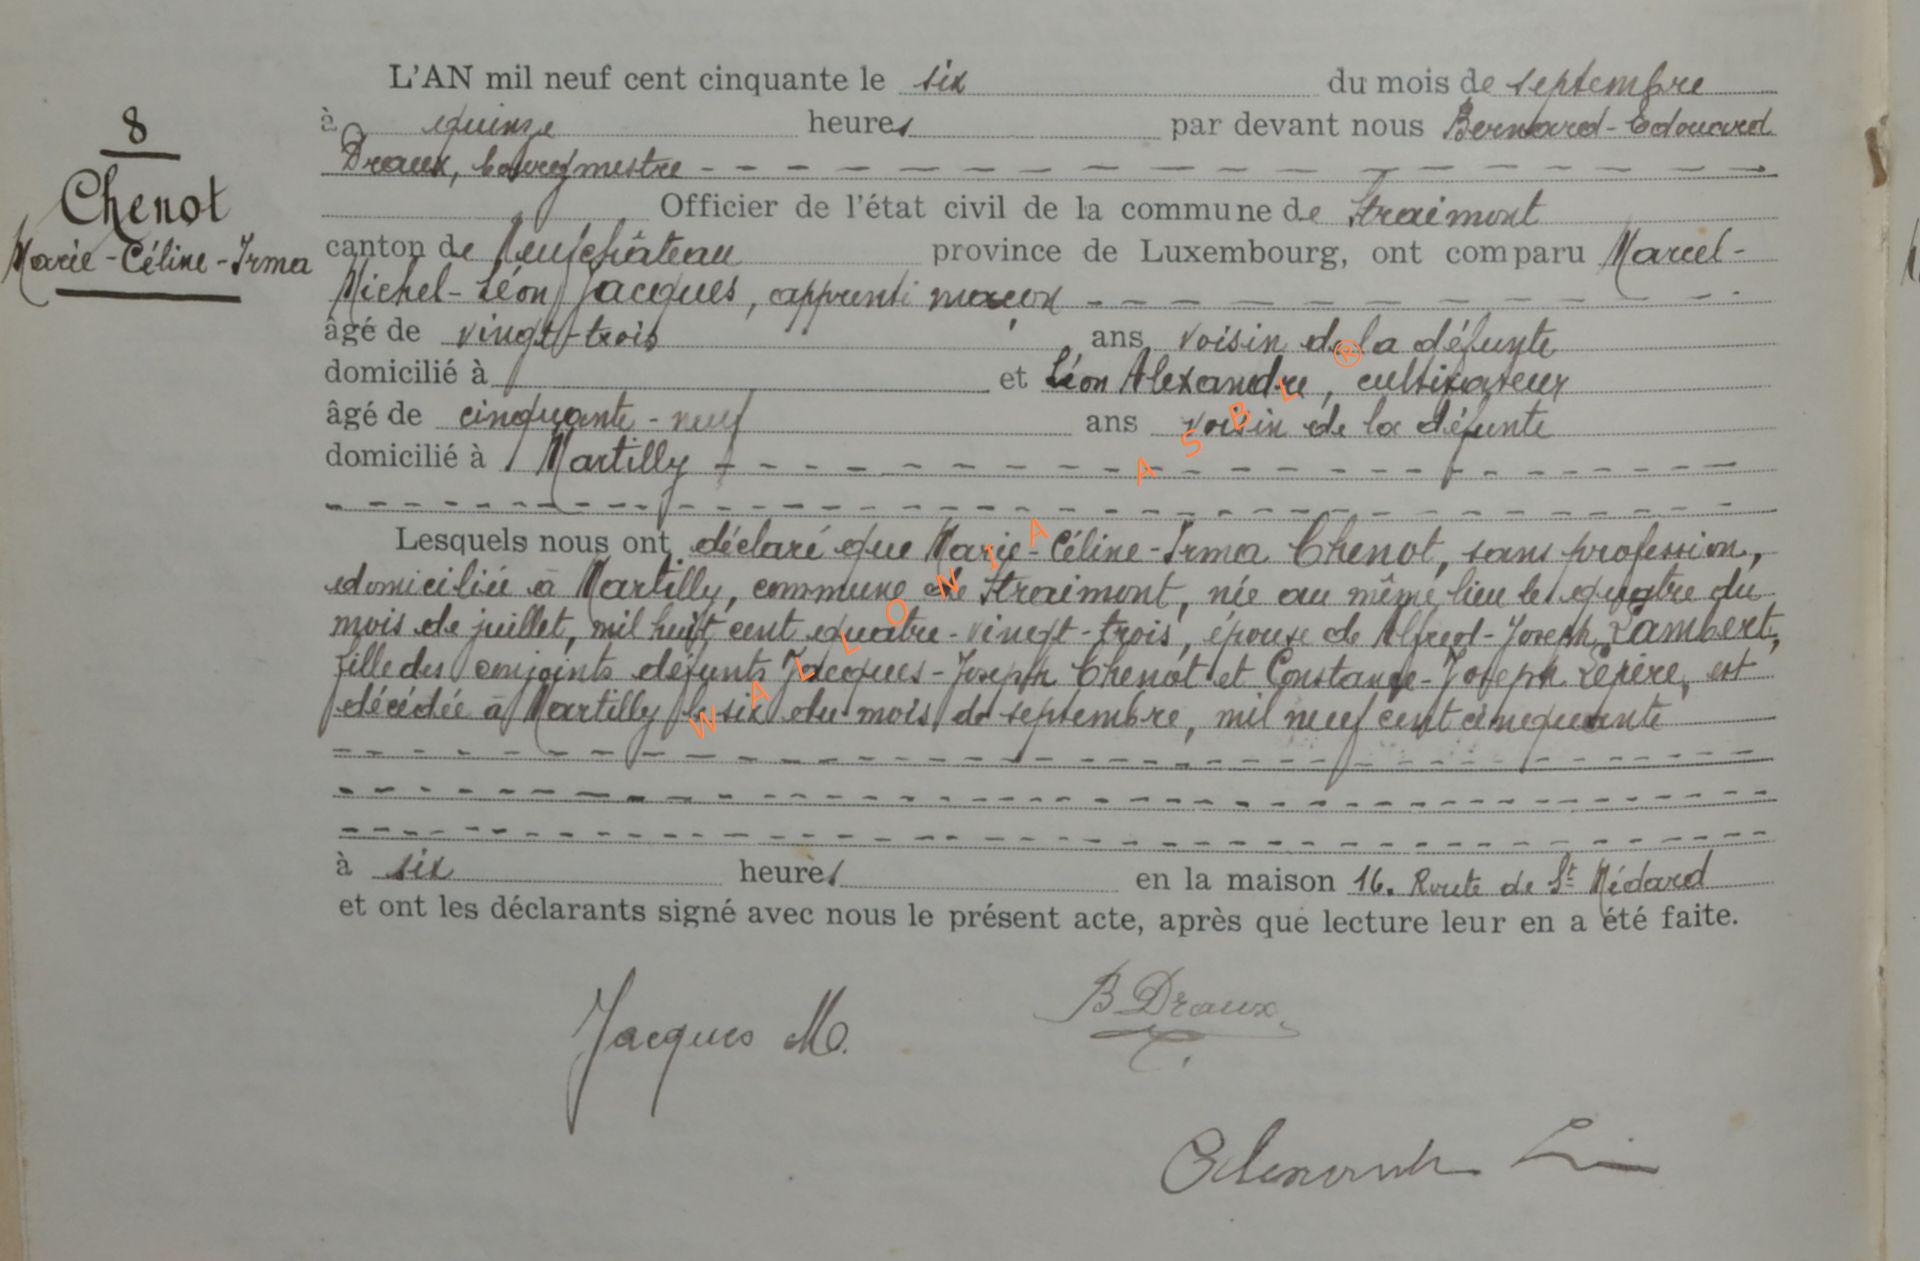 8
Chenot
Marie-Céline-Irma
L'AN mil neuf cent cinquante le six du mois de septembre
à quinze heures par devant nous Bernard-Edouard
Draux, bourgmestre
Officier de l'état civil de la commune de Straimont
canton de Neufchâteau province de Luxembourg, ont comparu Marcel-
Michel-Léon Jacques, apprenti maçon
âgé de vingt-trois ans voisin de la défunte
domicilié à et Léon Alexandre, cultivateur
âgé de cinquante-neuf ans voisin de la défunte
domicilié à Martilly
Lesquels nous ont déclaré que Marie-Céline-Irma Chenot, sans profession,
domiciliée à Martilly, commune de Straimont, née au même lieu le quatre du
mois de juillet, mil huit cent quatre-vingt-trois, épouse de Alfred-Joseph Lambert,
fille des conjoints défunts Jacques-Joseph Chenot et Constance-Joseph Lepère, est
décédée à Martilly le six du mois de septembre, mil neuf cent cinquante
à six heures en la maison 16. Route de St Médard
et ont les déclarants signé avec nous le présent acte, après que lecture leur en a été faite.
Jacques M.
B Draux
Alexandre Léon
WALLONIA ASBL ®